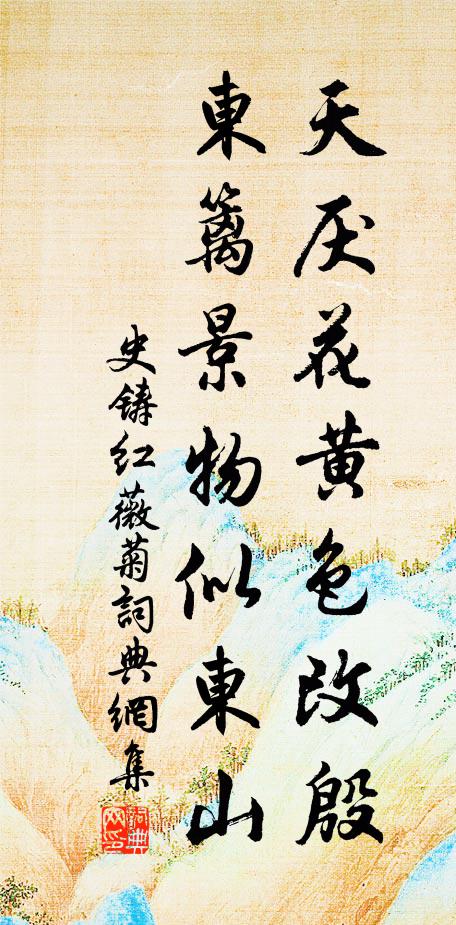 天厌花黄色改殷
東篱景物似東山
史铸红薇菊詞典網集
詞典
网印